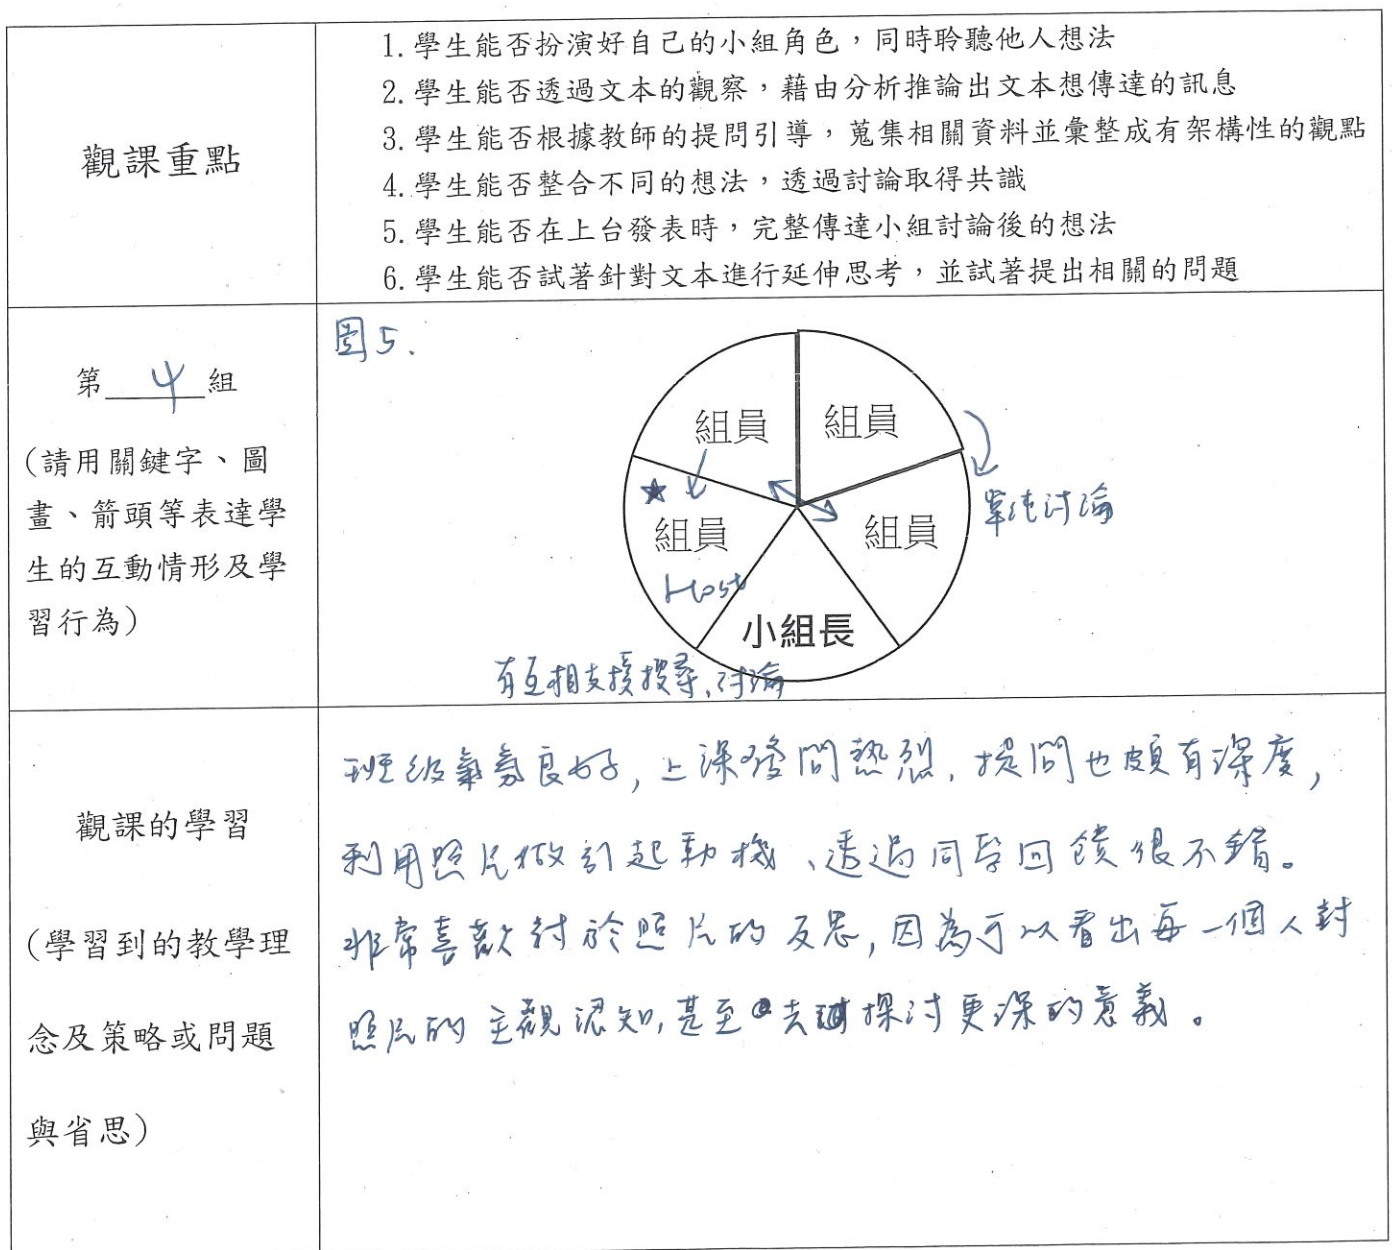 觀課重點
1.學生能否扮演好自己的小組角色，同時聆聽他人想法
2.學生能否透過文本的觀察，藉由分析推論出文本想傳達的訊息
3.學生能否根據教師的提問引導，蒐集相關資料並彙整成有架構性的觀點
4.學生能否整合不同的想法，透過討論取得共識
5.學生能否在上台發表時，完整傳達小組討論後的想法
6.學生能否試著針對文本進行延伸思考，並試著提出相關的問題
第 4 組
(請用關鍵字、圖
畫、箭頭等表達學
生的互動情形及學
習行為)
圖5.
組員
組員
組員
Host
組員
單純討論
小組長
有互相支援搜尋、討論
觀課的學習
(學習到的教學理
念及策略或問題
與省思)
班級氣氛良好, 上課發問熱烈, 提問也頗有深度,
利用照片做引起動機、透過同學回饋很不錯。
非常喜歡對於照片的反思, 因為可以看出每一個人對
照片的主觀認知, 甚至去探討更深的意義。